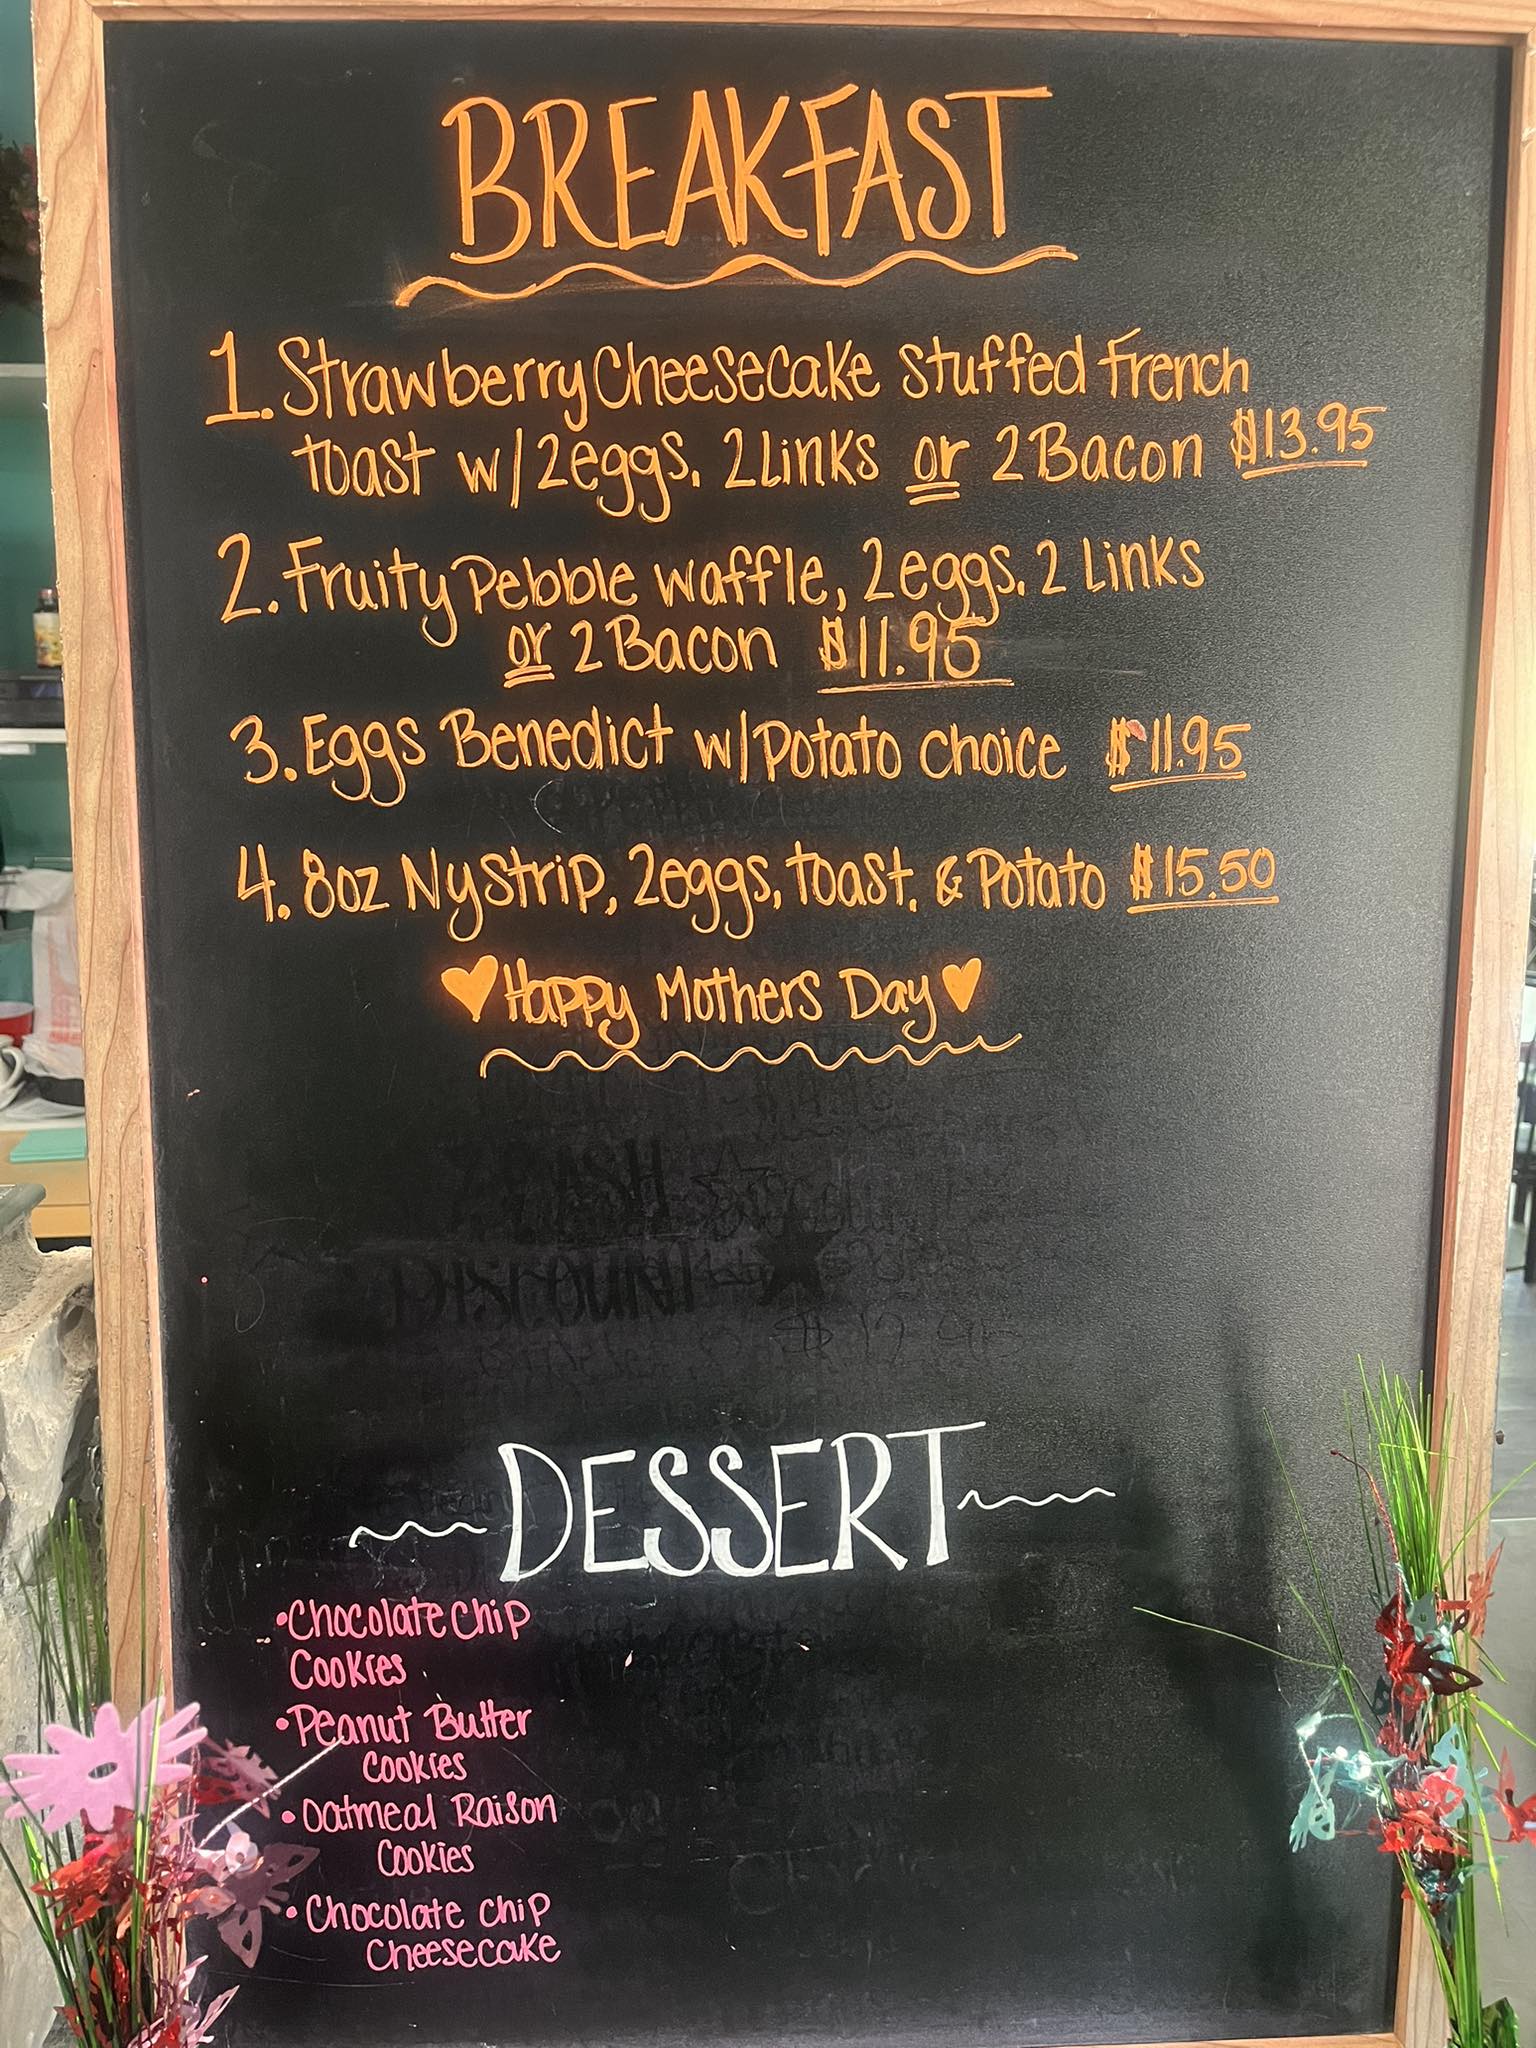 BREAKFAST
1. Strawberry Cheesecake Stuffed French
toast w/ 2 eggs, 2 Links or 2 Bacon $13.95
2. Fruity Pebble Waffle, 2 eggs, 2 Links
or 2 Bacon $11.95
3. Eggs Benedict w/ Potato choice $11.95
4. 8oz Ny Strip, 2 eggs, toast, & Potato $15.50
♥ Happy Mothers Day ♥
CASH
DISCOUNT
$17.95
DESSERT
• Chocolate Chip
Cookies
• Peanut Butter
Cookies
• Oatmeal Raison
Cookies
• Chocolate Chip
Cheesecake